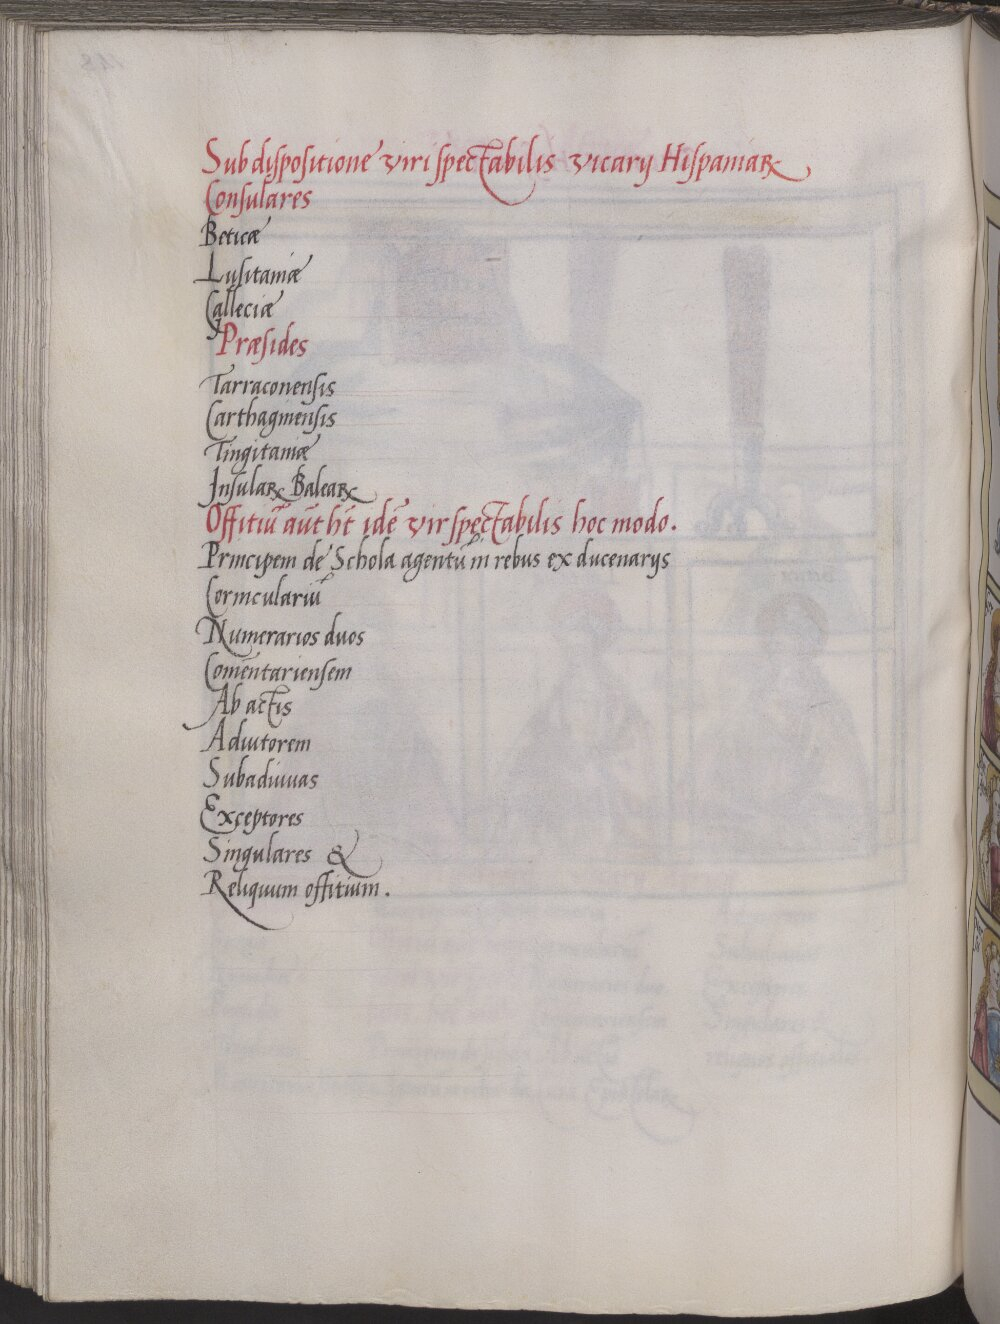 Sub dispositione viri spectabilis vicarij Hispaniaꝝ
Consulares
Beticæ
Lusitaniæ
Calleciæ
Præsides
Tarraconensis
Carthaginensis
Tingitaniæ
Insulaꝝ Baleaꝝ
Offitiū aūt ht̄ idē vir spectabilis hoc modo.
Principem de Schola agentū in rebus ex ducenarijs
Corniculariū
Numerarios duos
Comēntariensem
Ab actis
Adiutorem
Subadiuuas
Exceptores
Singulares &
Reliquum offitium.